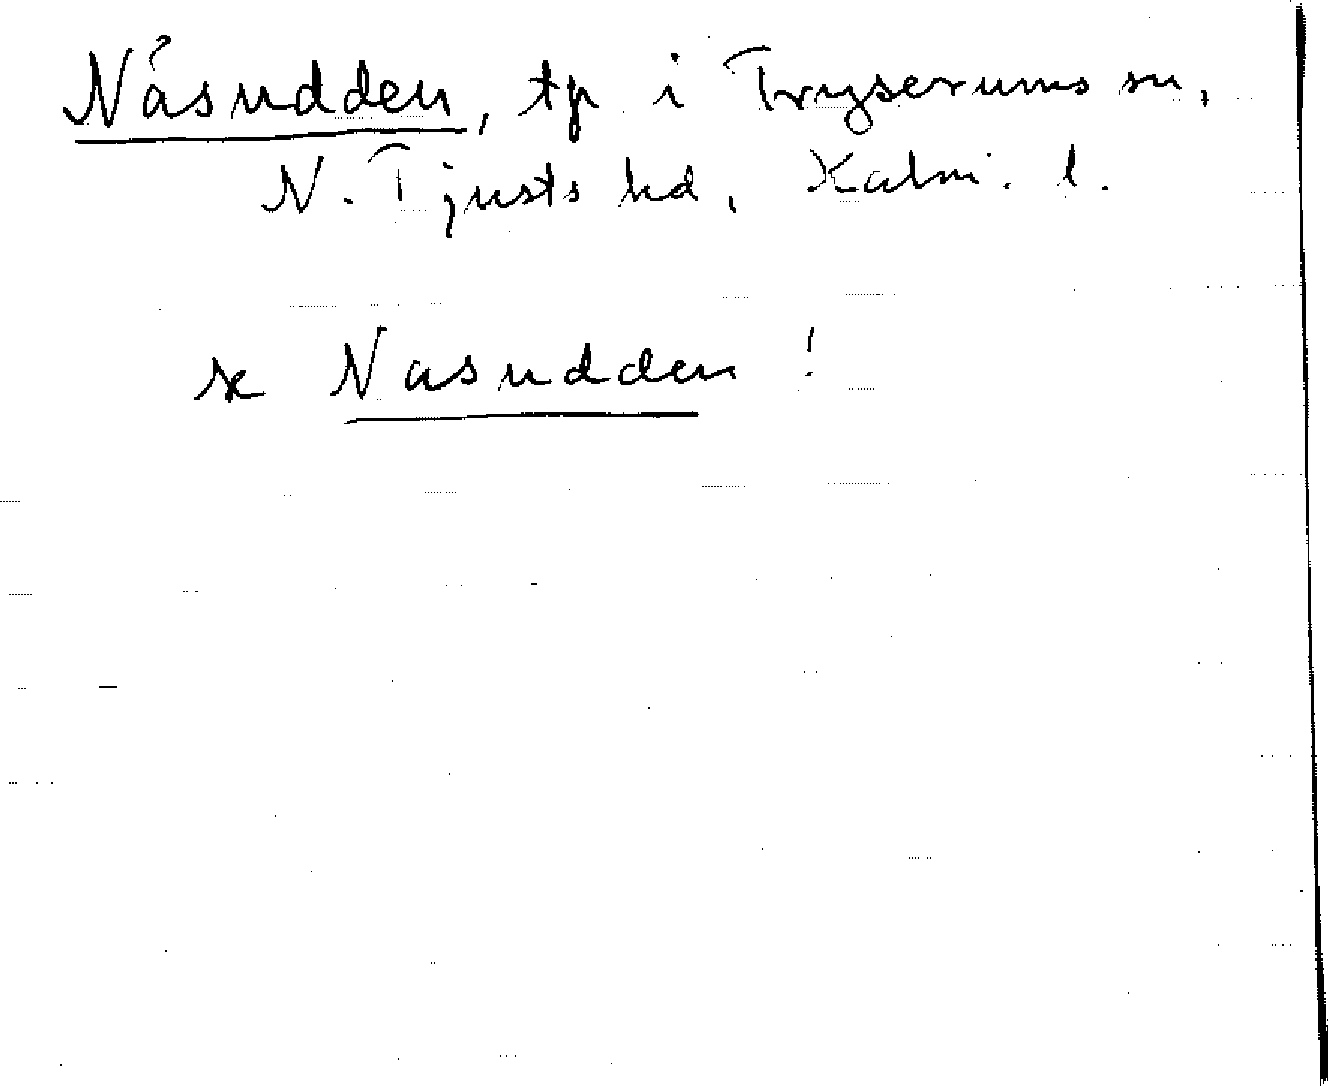 Nåsudden, tp i Tryserums sn,
N. Tjusts hd, Kalm. l.
se Nasudden!